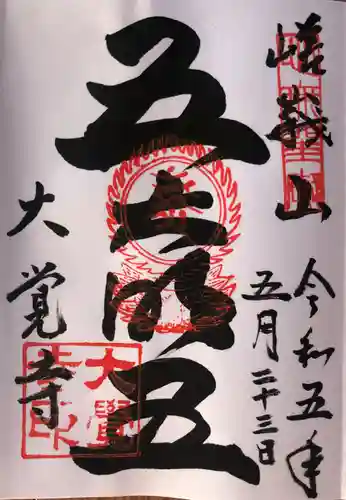 嵯峨山
令和五年
五月二十三日
五大明王
大覚寺
大覺